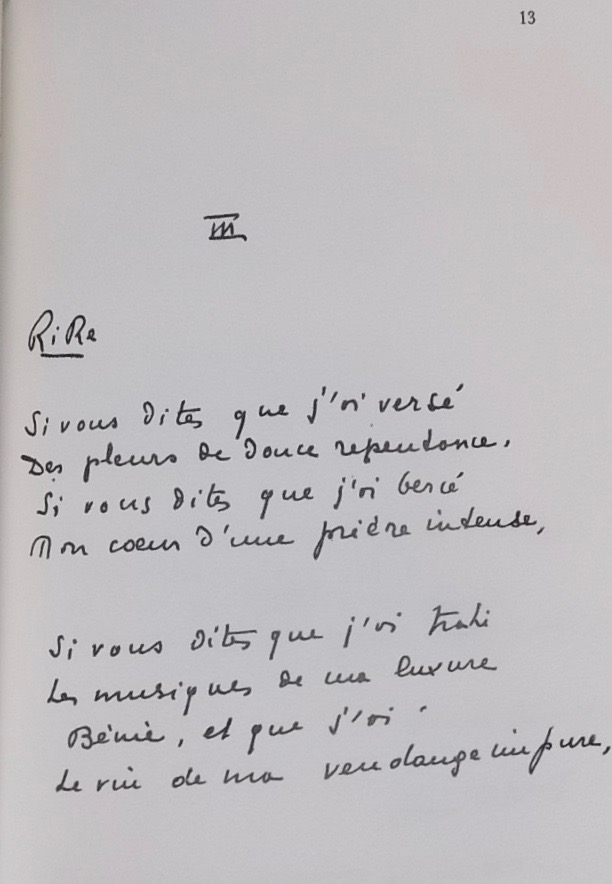 13
III
RiRe
Si vous dites que j'ai versé
Des pleurs de douce repentance,
Si vous dites que j'ai bercé
Mon coeur d'une prière intense,
Si vous dites que j'ai trahi
Les musiques de ma luxure
Bénie, et que j'ai
Le vin de ma vendange impure,